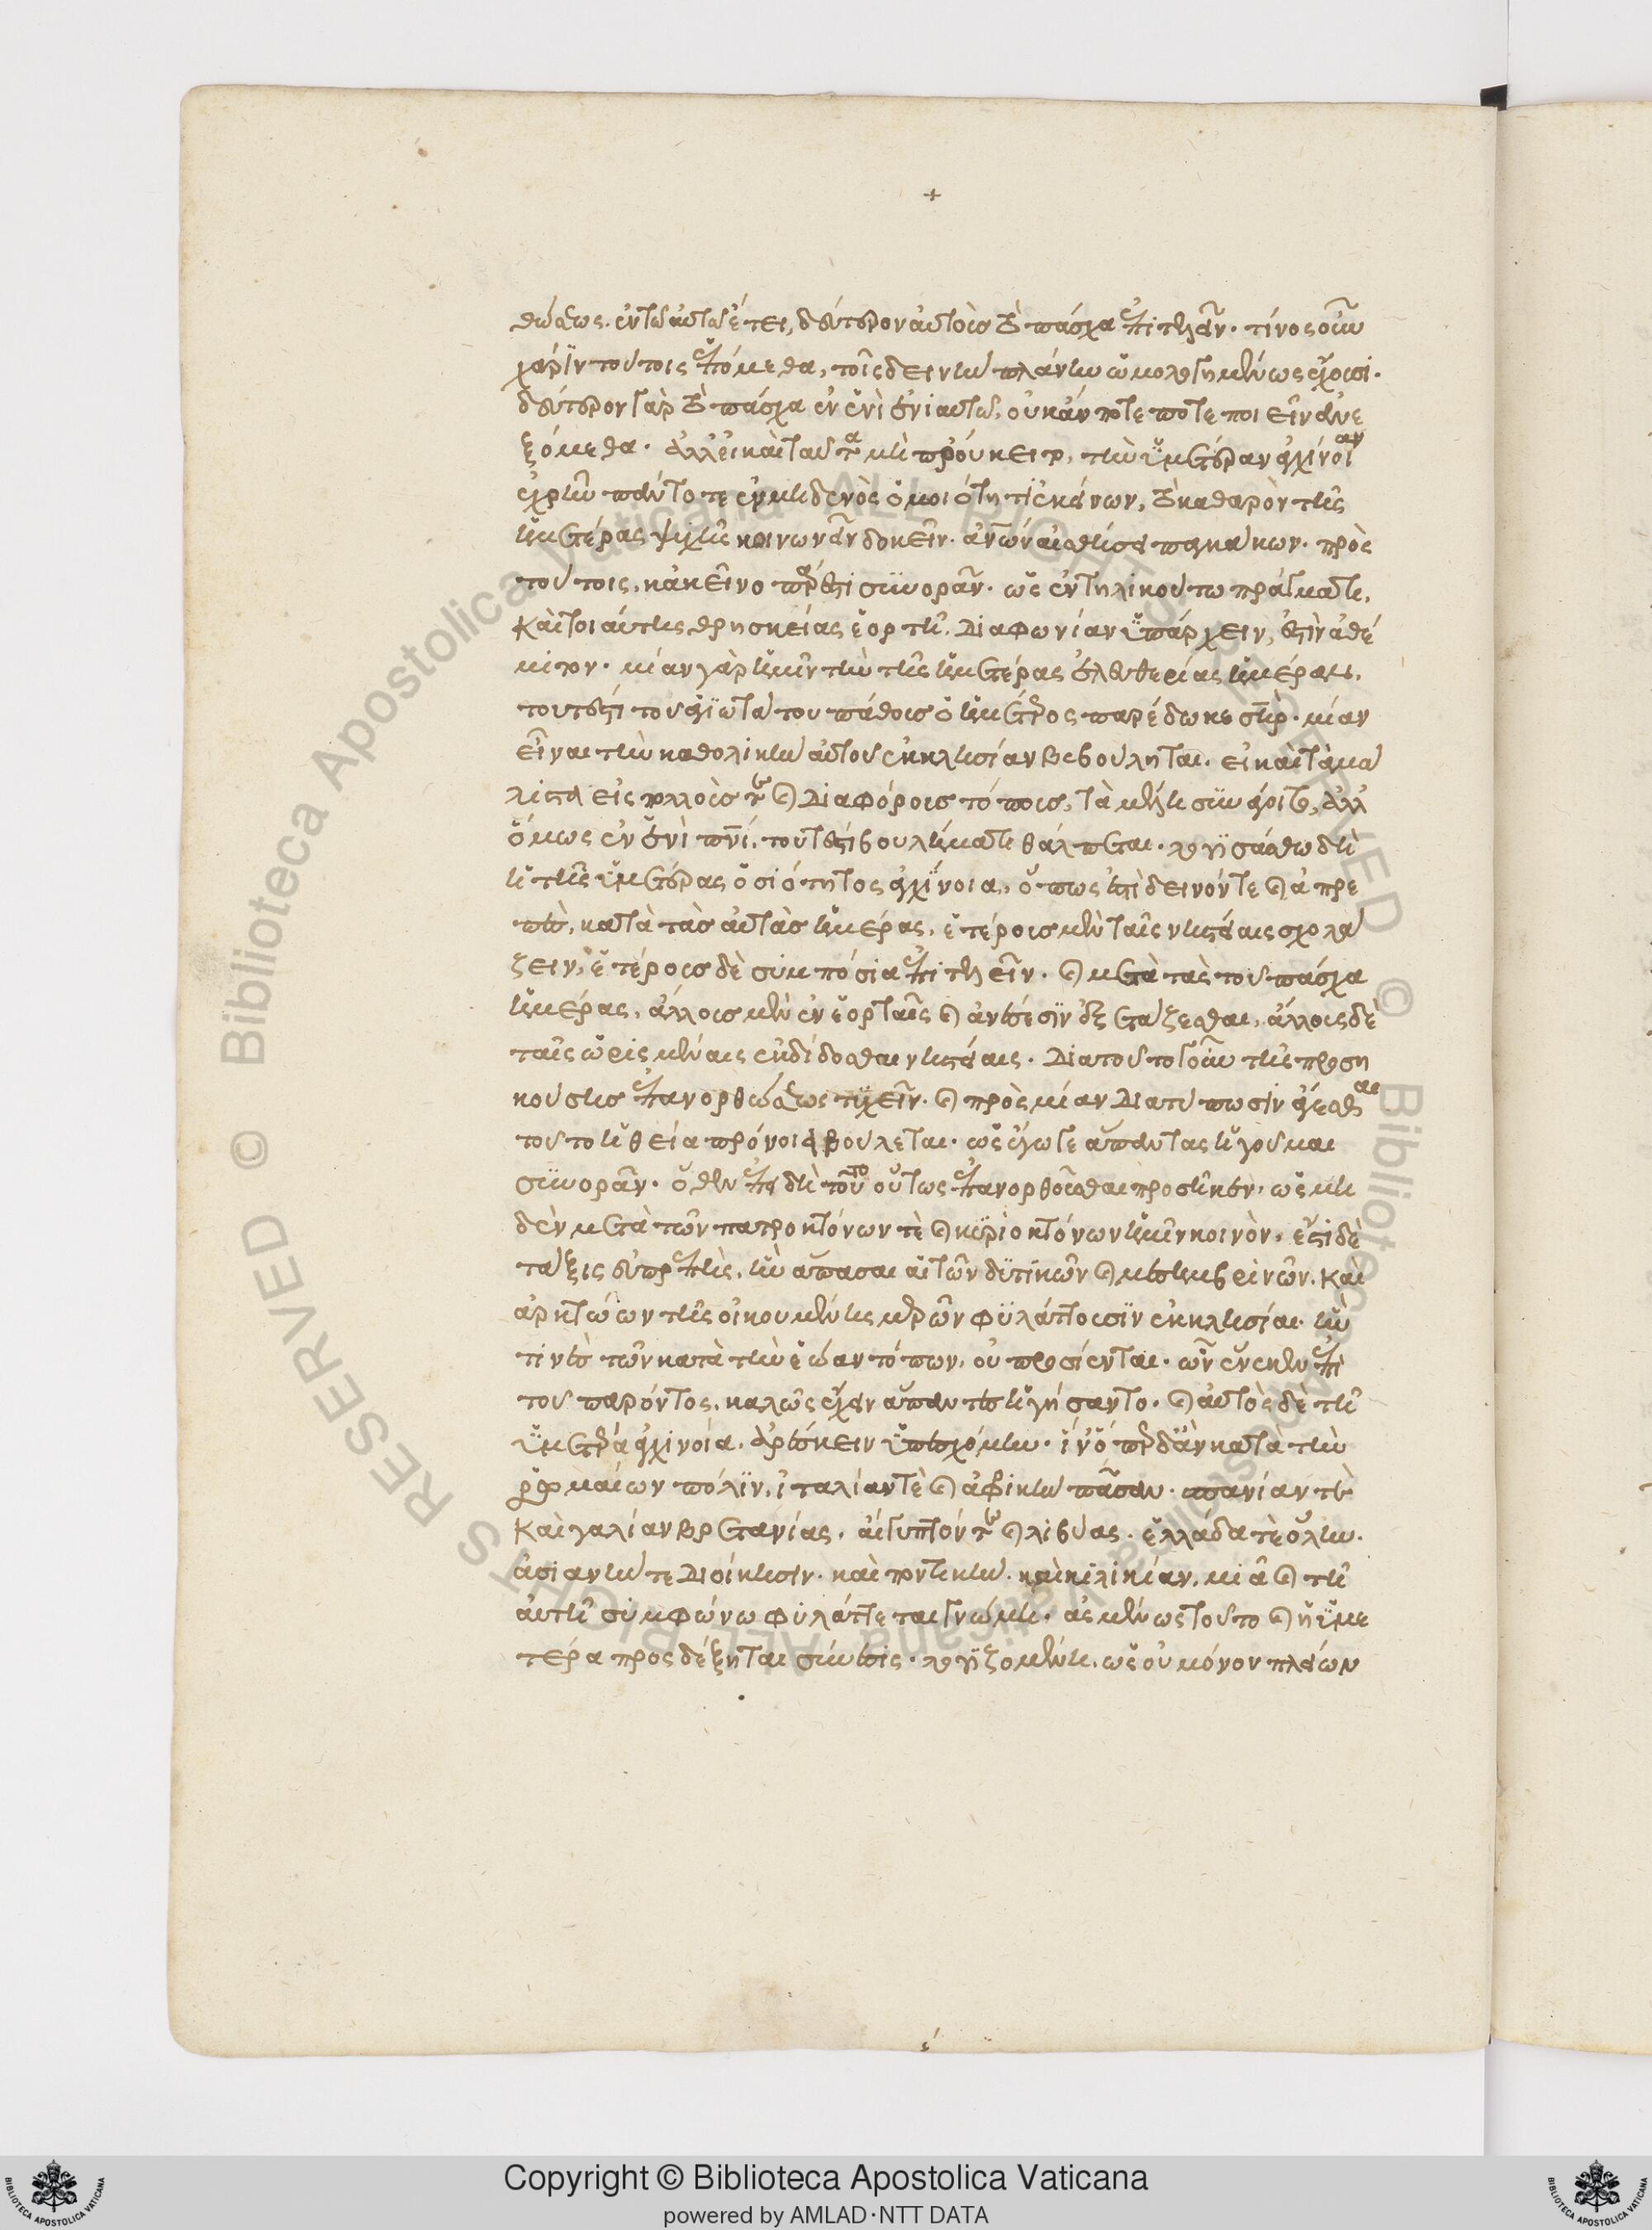 +
θώσεως. ἐν τῷ αὐτῷ ἔτει, δεύτερον αὐτοὺς τὸ πάσχα ἐπιτελεῖν. τίνος οὖν
χάριν τούτοις ἑπόμεθα, τοῖς δεινὴν πλάνην ὡμολογημένως ἔχουσι.
δεύτερον γὰρ τὸ πάσχα ἐν ἑνὶ ἐνιαυτῷ, οὐκ ἄν ποτε ποιεῖν ἀνε
ξόμεθα. ἀλλ' εἰ καὶ ταῦτα μὴ προύκειτο, τὴν ὑμετέραν ἀγχίνοιαν
ἐχρῆν πάντοτε ἐν μηδενὸς ὁμοιότητι ἐκείνων, τὸ καθαρὸν τῆς
ἡμετέρας ψυχῆς κοινωνεῖν δοκεῖν. ἀνῶν αἰσθήσει παγκάκων. πρὸς
τούτοις, κἀκεῖνο πάρεστι συνορᾶν. ὡς ἐν τηλικούτω πράγματι,
καὶ τοιαύτης θρησκείας ἑορτῇ, διαφωνίαν ὑπάρχειν, ἐστὶν ἀθέ
μιτον. μίαν γὰρ ἡμῖν τὴν τῆς ἡμετέρας ἐλευθερίας ἡμέραν,
τουτέστι τοῦ ἁγιωτάτου πάθους ὁ ἡμέτερος παρέδωκε σηρ. μίαν
εἶναι τὴν καθολικὴν αὐτοῦ ἐκκλησίαν βεβούληται. εἰ καὶ τὰ μά
λιστα εἰς πολλοὺς τε καὶ διαφόρους τόπους, τὰ μέλη συνῄρητο, ἀλλ'
ὅμως ἐν ἑνὶ πνί, τουτέστι βουλήματι θάλπεται. λογισάσθω δὴ
ἡ τῆς ὑμετέρας ὁσιότητος ἀγχίνοια, ὅπως ἐστὶ δεινόν τε καὶ ἀπρε
πὲς, κατὰ τὰς αὐτὰς ἡμέρας, ἑτέρους μὲν ταῖς νηστείαις σχολά
ζειν, ἑτέρους δὲ συμπόσια ἐπιτελεῖν. καὶ μετὰ τὰς τοῦ πάσχα
ἡμέρας, ἄλλους μὲν ἐν ἑορταῖς καὶ ἀνέσεσιν ἐξετάζεσθαι, ἄλλους δὲ
ταῖς ὡρισμέναις ἐκδίδοσθαι νηστείαις. διὰ τοῦτο γοῦν τῆς προση
κούσης ἐπανορθώσεως τυχεῖν. καὶ πρὸς μίαν διατύπωσιν ἄγεσθαι
τοῦτο ἡ θεία πρόνοια βούλεται. ὡς ἔγωγε ἅπαντας ἡγοῦμαι
συνορᾶν. ὅθεν ἐπειδὴ τοῦτο οὕτως ἐπανορθοῦσθαι προσῆκεν, ὡς μη
δὲν μετὰ τῶν πατροκτόνων τὲ καὶ κυριοκτόνων ἡμῖν κοινὸν, ἔστι δὲ
τάξις εὐπρεπὴς, ἣν ἅπασαι αἱ τῶν δυτικῶν καὶ μεσημβρινῶν, καὶ
ἀρκτώων τῆς οἰκουμένης μερῶν φυλάττουσιν ἐκκλησίαι. ἣν
τινὲς τῶν κατὰ τὴν ἑώαν τόπων, οὐ προσίενται. ὧν ἕνεκεν ἐπὶ
τοῦ παρόντος, καλῶς ἔχειν ἅπαντες ἡγήσαντο. καὶ αὐτὸς δὲ τῇ
ὑμετέρα ἀγχινοία, ἀρέσκειν ὑπεσχόμην. ἵν' ὅπερ δ' ἂν κατὰ τὴν
ῥωμαίων πόλιν, ἰταλίαν τὲ καὶ ἀφρικὴν πᾶσαν. σπανίαν τὲ
καὶ γαλίαν βρετανίας, αἴγυπτόν τε καὶ λιβύας. ἑλλάδα τὲ ὅλην.
ἀσιανήν τε διοίκησιν. καὶ ποντικὴν. καὶ κιλικίαν, μιᾷ καὶ τῇ
αὐτῇ συμφώνω φυλάττεται γνώμη. ἀσμένως τοῦτο καὶ ἡ ὑμε
τέρα προσδέξηται σύνεσις. λογιζομένη, ὡς οὐ μόνον πλείων
Copyright © Biblioteca Apostolica Vaticana
powered by AMLAD·NTT DATA